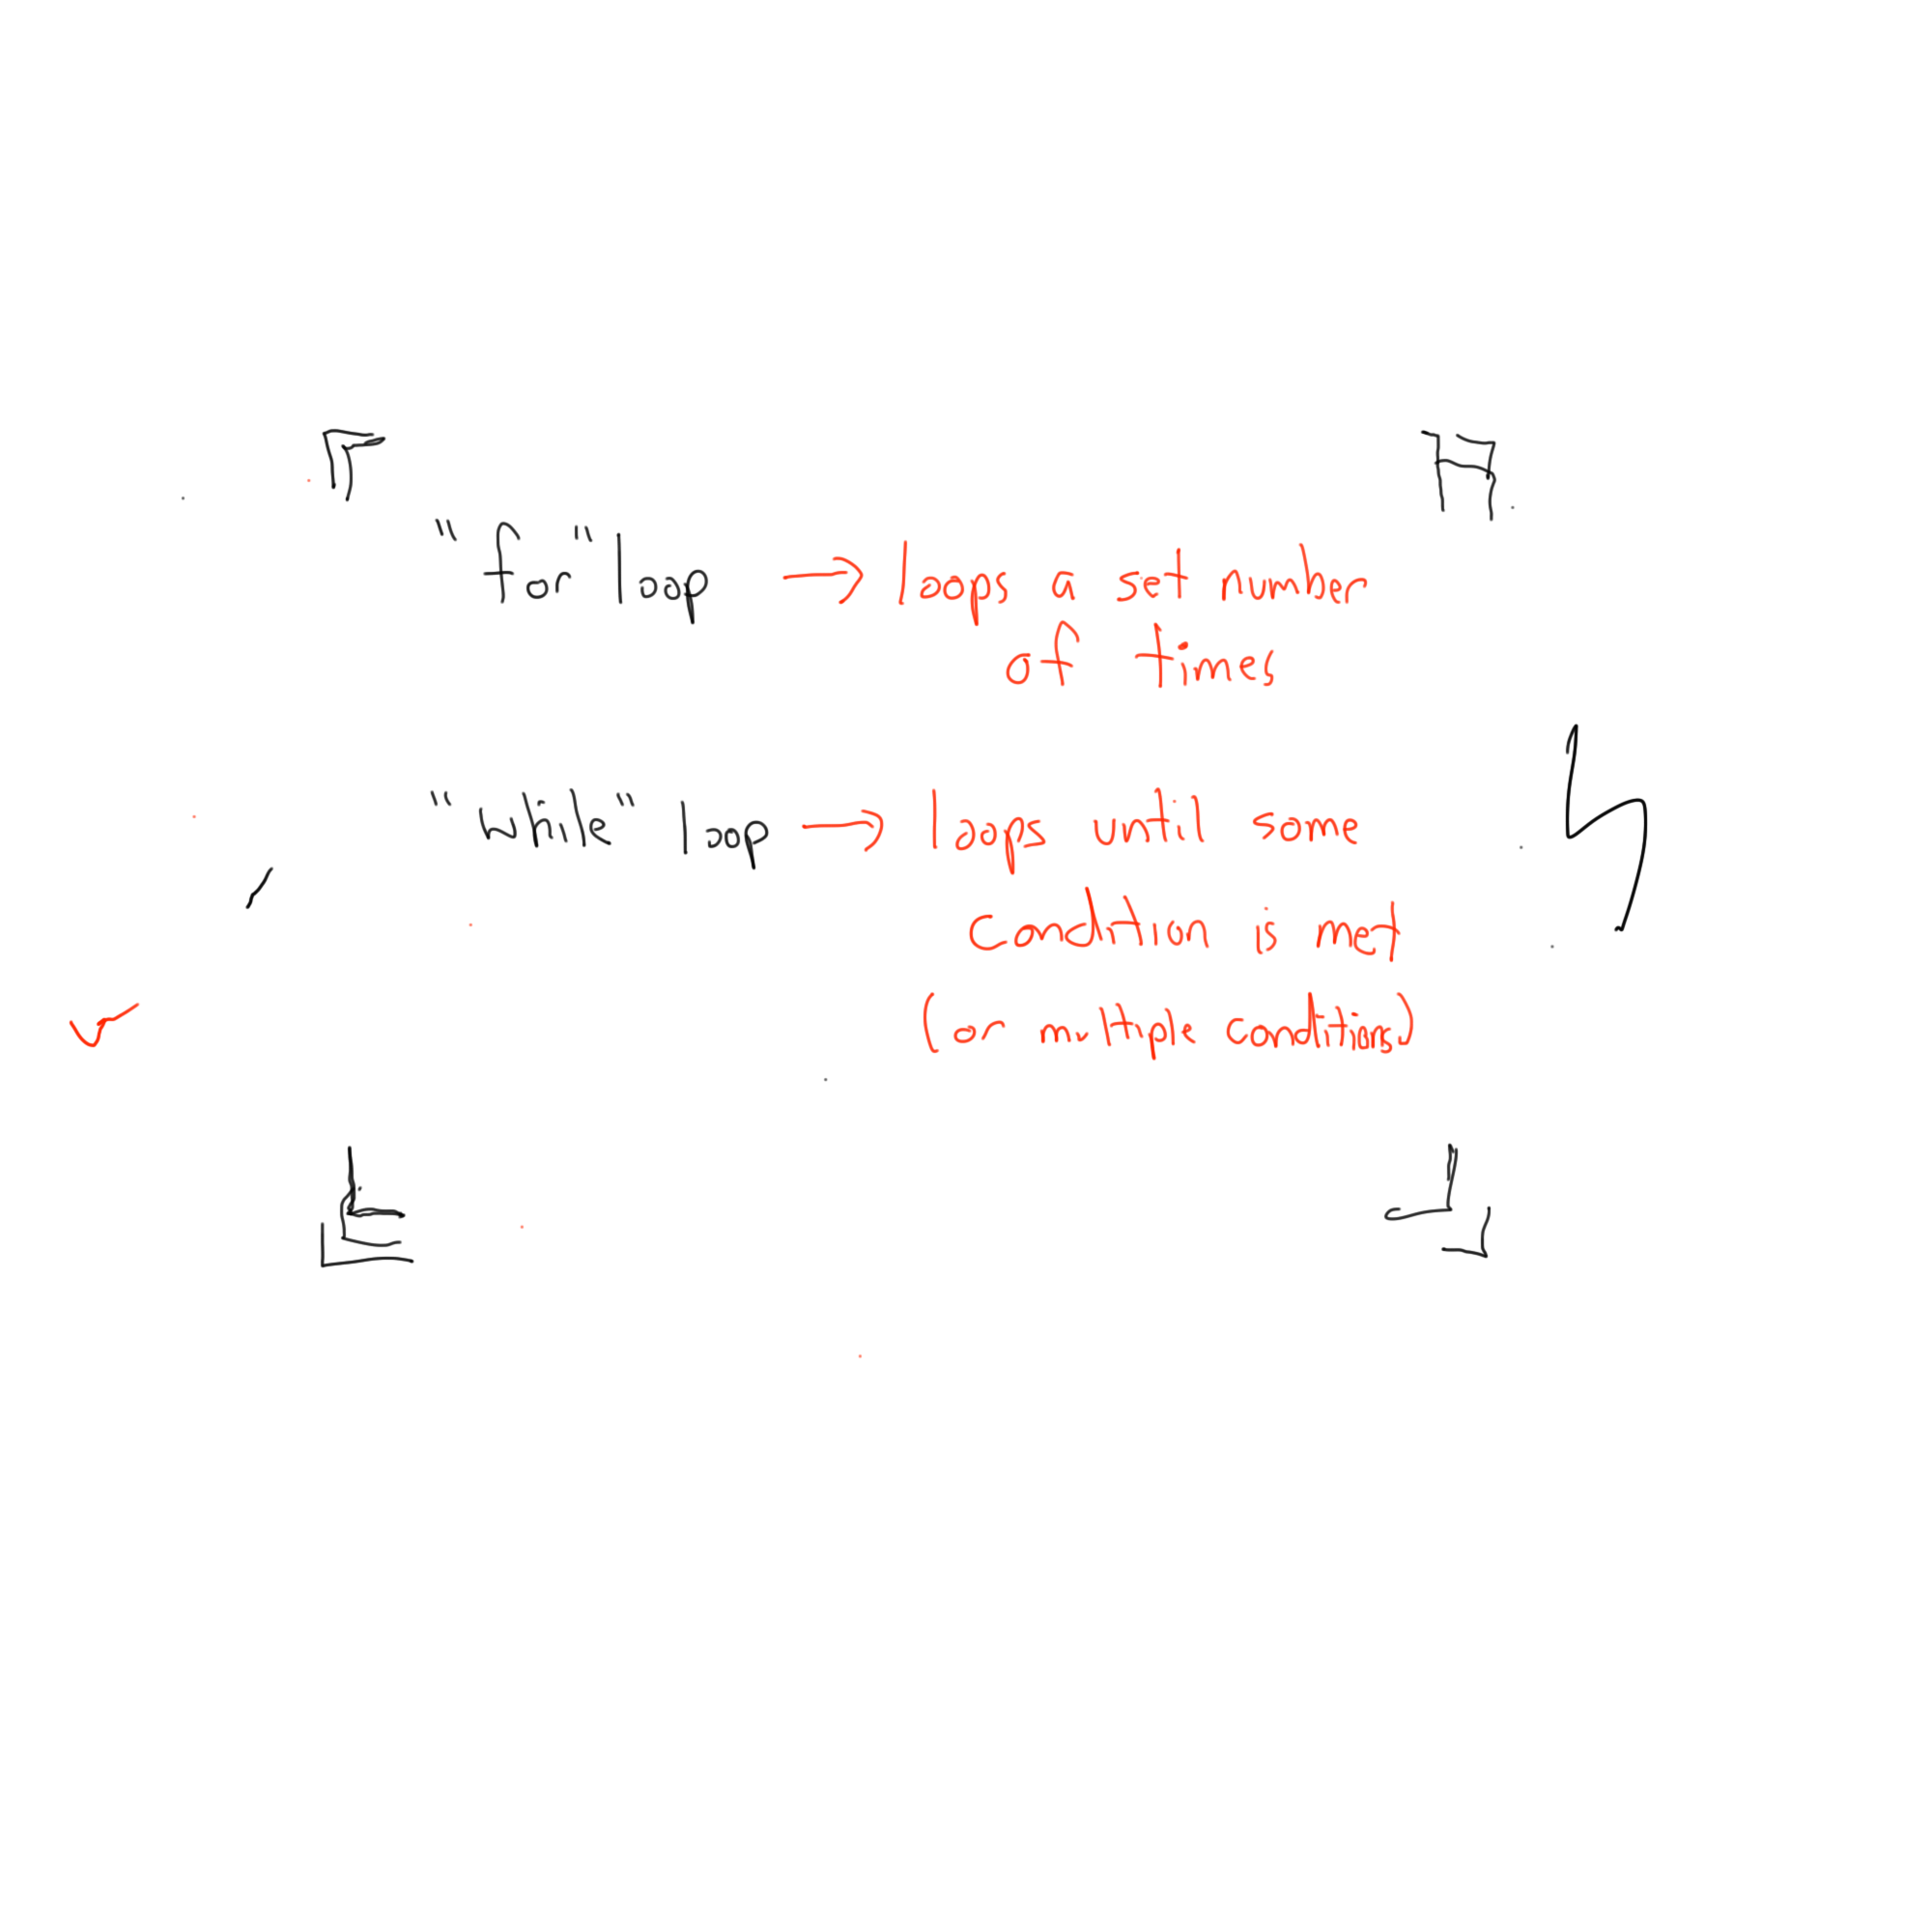 "for" loop → loops a set number
of times
"while" loop → loops until some
condition is met
(or multiple conditions)